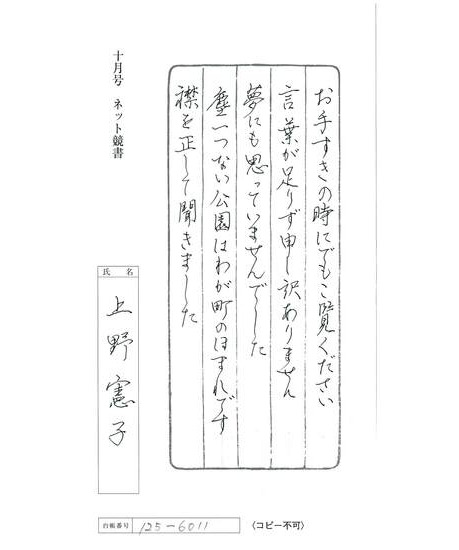 お手すきの時にでもご覧ください
言葉が足りず申し訳ありません
夢にも思っていませんでした
塵一つない公園はわが町のほまれです
襟を正して聞きました
十月号 ネット競書
氏名
上野憲子
台帳番号 125-6011
〈コピー不可〉